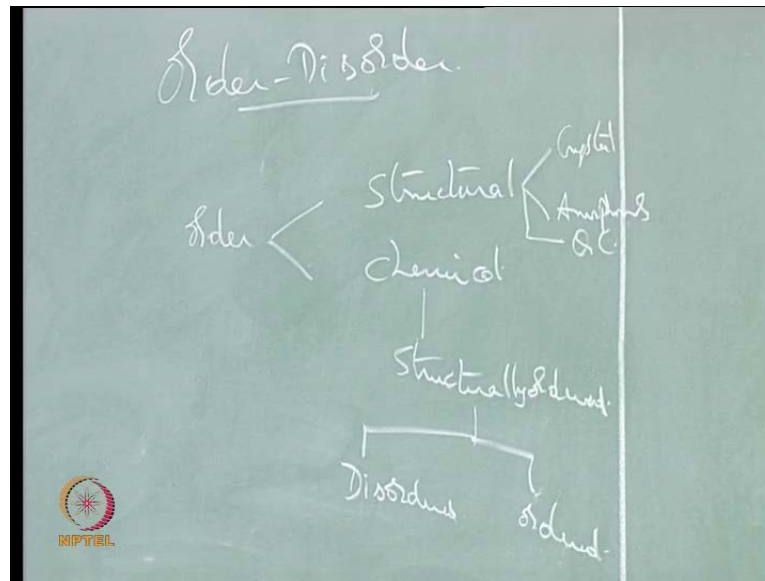 Order-Disorder.
Structural
Crystal
Order
Amorphous
Q C.
Chemical
Structurally Ordered.
Disorders
Ordered.
NPTEL